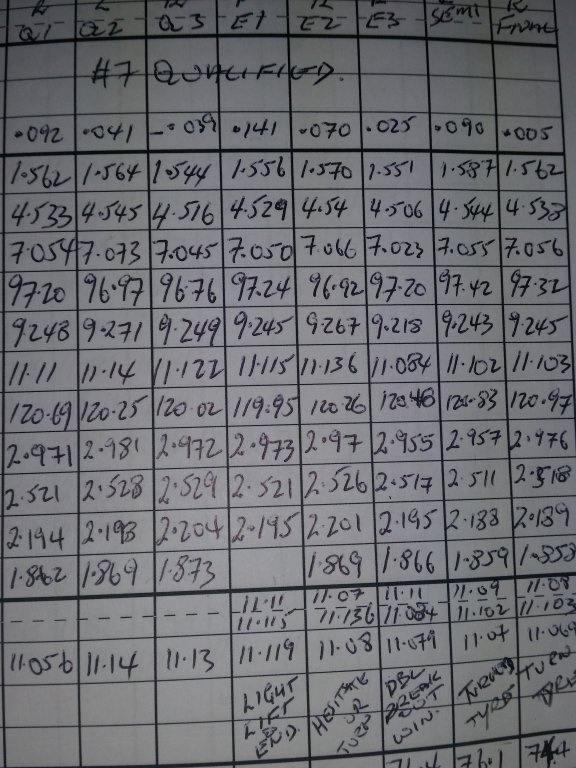 Q1 Q2 Q3 E1 E2 E3 SEMI FINAL
#7 QUALIFIED.
.092 .041 -.039 .141 .070 .025 .090 .005
1.562 1.564 1.544 1.556 1.570 1.551 1.587 1.562
4.533 4.545 4.516 4.529 4.54 4.506 4.544 4.538
7.054 7.073 7.045 7.050 7.066 7.023 7.055 7.056
97.20 96.97 96.76 97.24 96.92 97.20 97.42 97.32
9.248 9.271 9.249 9.245 9.267 9.218 9.243 9.245
11.11 11.14 11.122 11.115 11.136 11.084 11.102 11.103
120.69 120.25 120.02 119.95 120.26 120.48 120.83 120.97
2.971 2.981 2.972 2.973 2.97 2.955 2.957 2.976
2.521 2.528 2.529 2.521 2.526 2.517 2.511 2.518
2.194 2.198 2.204 2.195 2.201 2.195 2.188 2.189
1.862 1.869 1.873 1.869 1.866 1.859 1.858
11.11 11.07 11.11 11.09 11.08
11.115 11.136 11.084 11.102 11.103
11.056 11.14 11.13 11.119 11.08 11.079 11.07 11.069
LIGHT
LIFT
@ END.
HESITATE
OR
TURN
DBL
BREAK
OUT
WIN.
TURNED
TYRE
TURN
TYRE
76.1